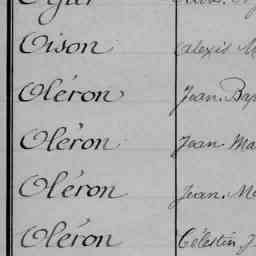 Oison Alexis
Oléron Jean. Bap
Oléron Jean Ma
Oléron Jean. M
Oléron Célestin. J